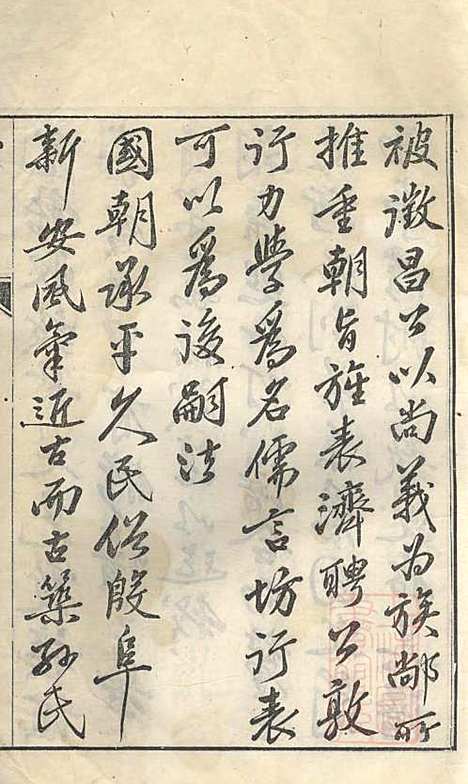 被徵昌公以尚義为族鄰所
推重朝旨旌表濟聘公敦
行力學爲名儒言坊行表
可以爲後嗣法
國朝承平久民俗殷阜
新安風氣近古而古築孫氏